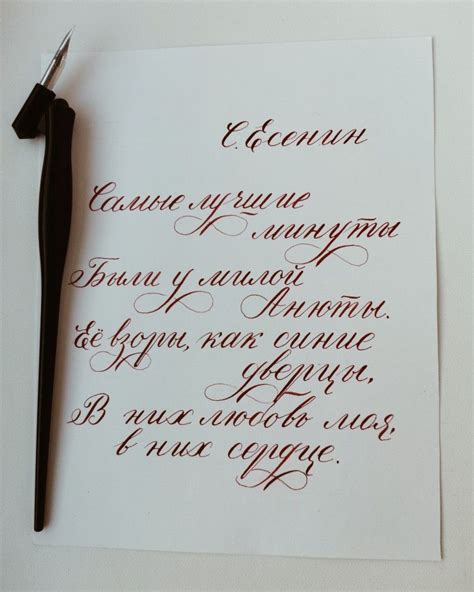 С. Есенин
Самые лучшие
минуты
Были у милой
Анюты.
Её взоры, как синие
дверцы,
В них любовь моя,
в них сердце.